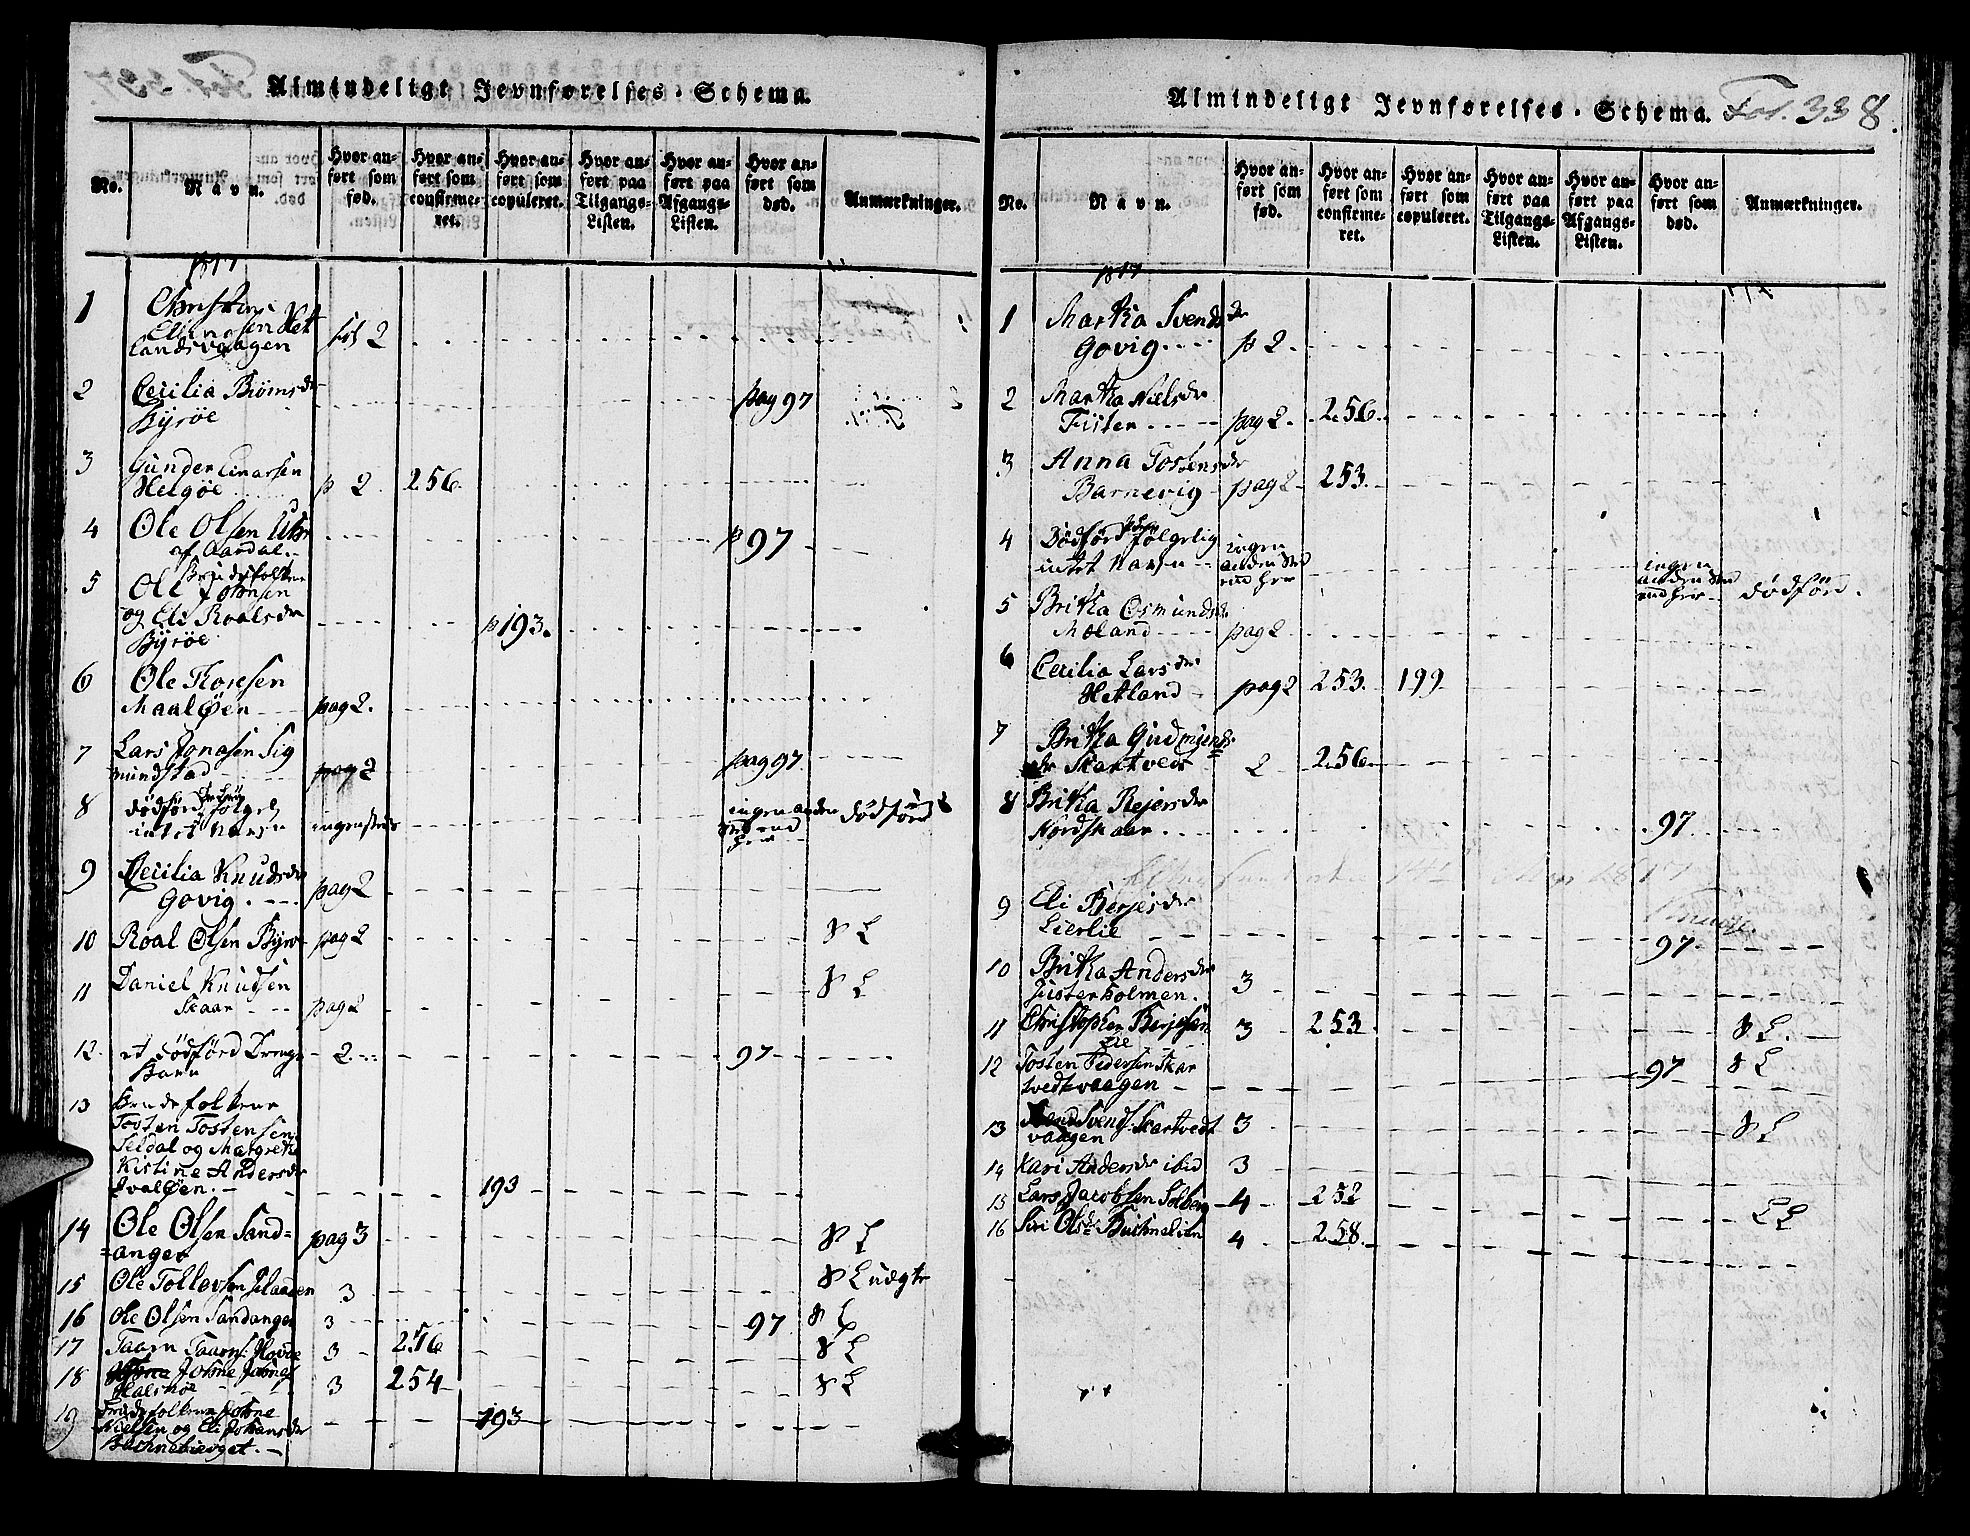 Almindeligt Jevnførelses-Schema.
No.
Navn.
Hvor an-
ført som
fød.
Hvor an-
ført som
confirme-
ret.
Hvor an-
ført som
copuleret.
Hvor an-
ført paa
Tilgangs-
Listen.
Hvor an-
ført paa
Afgangs-
Listen.
Hvor an-
ført som
død.
Anmærkninger.
1817
1 Christian
Elias sen Het
landsvaagen fol 2
2 Cecilia Biørnsdr
Byrøe pag 97
3 Gunder Einarsen
Helgøe p 2 256
4 Ole Olsen
af Aardal p 97
5 Brudefolkene
Ole Johnsen
og Eli Roalsdr
Byrøe p 193.
6 Ole Toresen
Maaløen pag 2.
7 Lars Jonasen Sig
mundstad pag 2 pag 97
8 dødförd Dreng følgel
intet Navn ingensteds ingen anden
Sted end
her dødförd
9 Cecilia Knudsdr
Govig pag 2
10 Roal Olsen Byrø pag 2 S L
11 Daniel Knudsen
Skaar pag 2 S L
12 et dødförd Drenge
Barn 2 97
13 Brudefolkene
Tosten Tostensen
Seldal og Margrete
Kistine Andersdr
Hvaløen 193
14 Ole Olsen Sand=
=anger pag 3 S L
15 Ole Tollevsen 3 S L udgtr
16 Ole Olsen Sandanger 3 97 S L
17 Taarn Taarns: Hovde 3 256 S L
18 Johne Johnes
Halsnøe 3 254 S L
19 Brudefolkene Johne
Nielsen og Eli Johansdr
193
Almindeligt Jevnførelses-Schema. Fol. 338.
No.
Navn.
Hvor an-
ført som
fød.
Hvor an-
ført som
confirme-
ret.
Hvor an-
ført som
copuleret.
Hvor an-
ført paa
Tilgangs-
Listen.
Hvor an-
ført paa
Afgangs-
Listen.
Hvor an-
ført som
død.
Anmærkninger.
1817
1 Martha Svendsdr
Govig p 2
2 Martha Nielsdr
Fister pag 2 256
3 Anna Tostensdr
Barnevig pag 2 253
4 Dødförd følgelig
intet Navn ingen
anden Sted
end her ingen
anden Sted
end her dødförd.
5 Britha Osmundsdr
Meland pag 2
6 Cecilia Larsdr
Hetland pag 2 253 199
7 Britha Gudmunds
dr Skartveit 2 256
8 Britha Rejersdr
Nordskaar 97
9 Eli Berjesdr
Lierlie 97
10 Britha Andersdr
Justerholmen 3
11 Christopher Berjesen
Lie 3 253 S L
12 Tosten Pedersen Skar
tvedtvaagen 97 S L
13 Svend Svends: Skartvedt
vaagen 3 S L
14 Kari Andersdr ibid 3
15 Lars Jacobsen Solberg 4 252 L L
16 Siri Olsdr 4 258